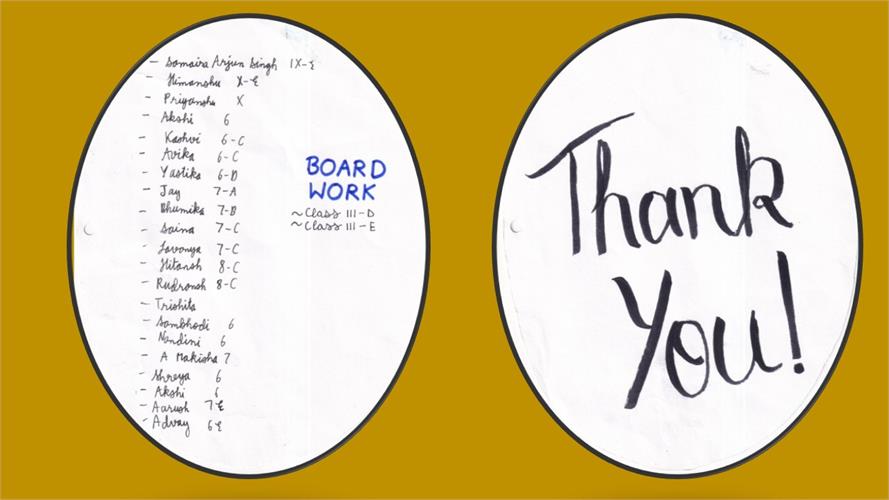 - Somaira Arjun Singh IX-E
- Himanshu X-E
- Priyanshu X
- Akshi 6
- Kashvi 6-C
- Avika 6-C
- Yastika 6-D
- Jay 7-A
- Bhumika 7-B
- Saina 7-C
- Lavanya 7-C
- Hitansh 8-C
- Rudransh 8-C
- Trishita
- Sambhodi 6
- Nandini 6
- A Makisha 7
- Shreya 6
- Akshi 6
- Aarush 7E
- Advay 6E
BOARD
WORK
~Class III-D
~Class III-E
Thank
You!